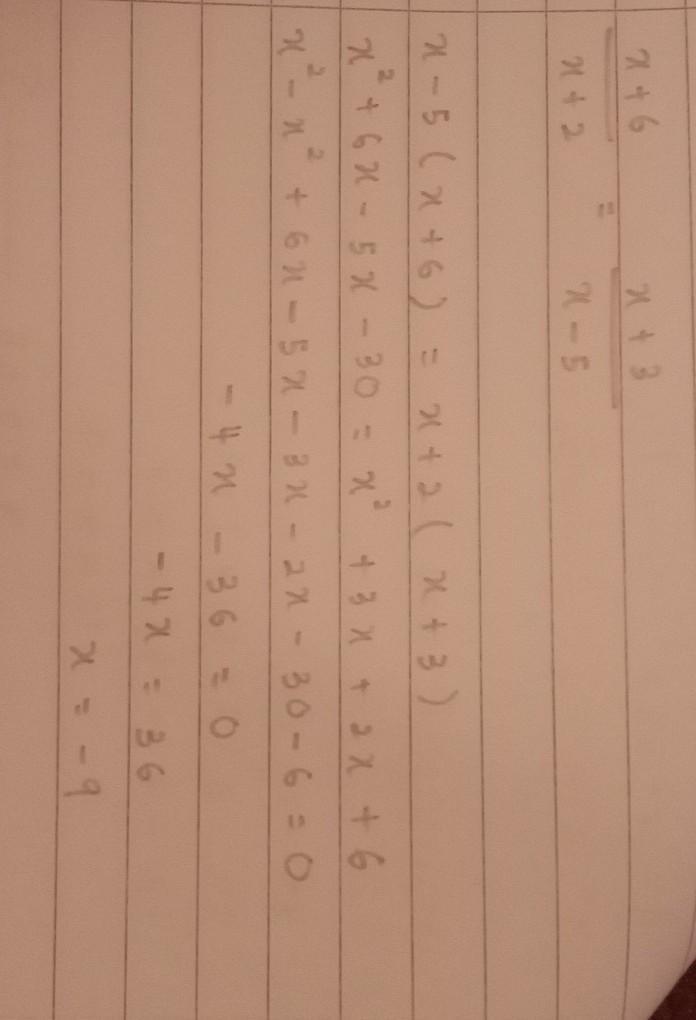 x + 6 = x + 3
x + 2 x - 5
x - 5 ( x + 6 ) = x + 2 ( x + 3 )
x² + 6x - 5x - 30 = x² + 3x + 2x + 6
x² - x² + 6x - 5x - 3x - 2x - 30 - 6 = 0
- 4x - 36 = 0
- 4x = 36
x = - 9